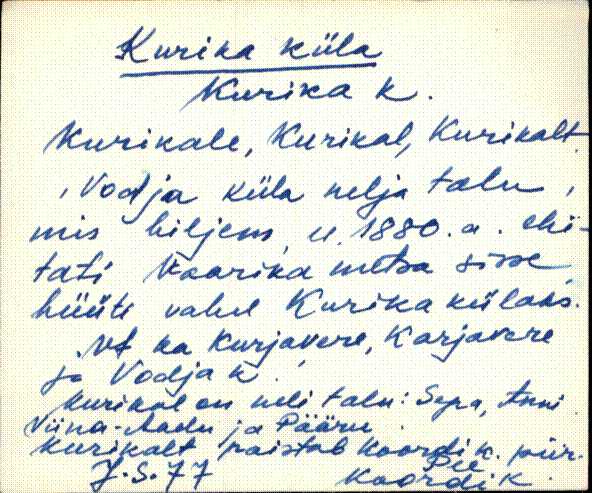 Kurika küla
Kurika k.
Kurikale, Kurikal, Kurikalt
, Vodja küla nelja talu,
mis hiljem, u. 1880. a. ehi-
tati Vaarika metsa sisse,
hüüti vahel Kurika külaks.
Vt ka Kurjavere, Karjavere
ja Vodja k.
Kurikal on neli talu: Sepa, Anni
Viina-Aadu ja Pääru.
Kurikalt paistab Koordi k. piir.
J.S. 77 Pee
Koordi k.